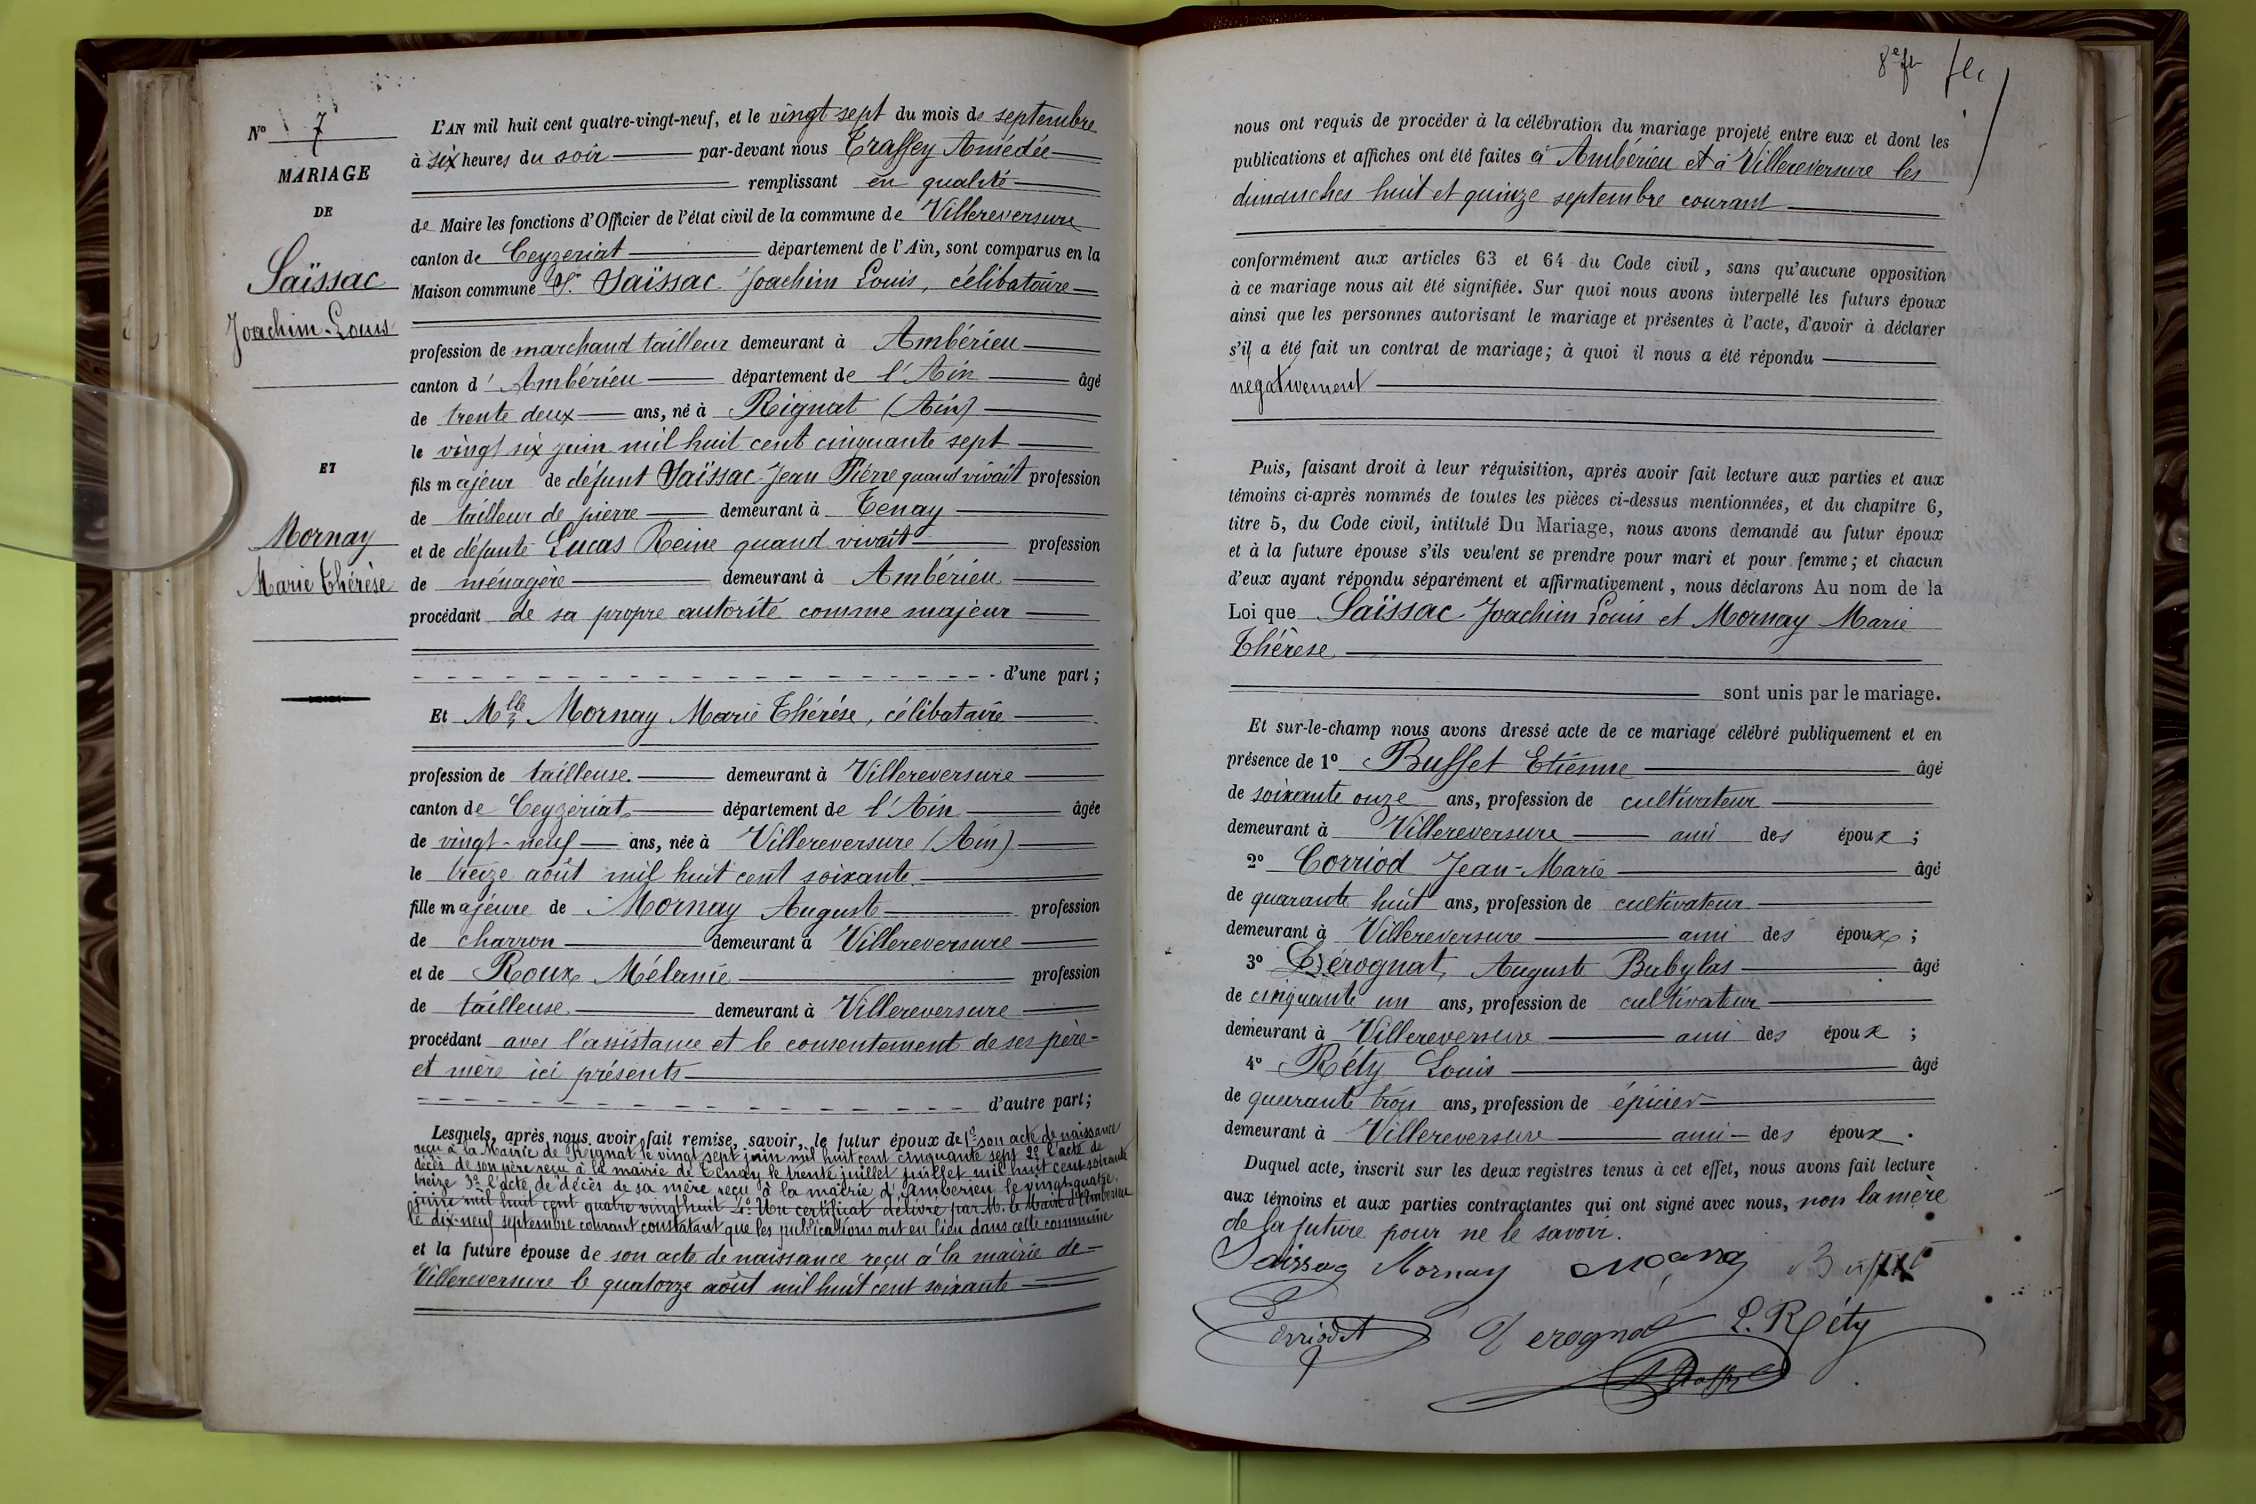 N° 7
MARIAGE
DE
Saïssac
Joachim-Louis
ET
Mornay
Marie Thérèse
L'AN mil huit cent quatre-vingt-neuf, et le vingt sept du mois de septembre
à six heures du soir par-devant nous Traffey Amédée
remplissant en qualité
de Maire les fonctions d'Officier de l'état civil de la commune de Villereversure
canton de Ceyzeriat département de l'Ain, sont comparus en la
Maison commune Sr Saïssac Joachim Louis, célibataire
profession de marchand tailleur demeurant à Ambérieu
canton d' Ambérieu département de l'Ain âgé
de trente deux ans, né à Rignat (Ain)
le vingt six juin mil huit cent cinquante sept
fils majeur de défunt Saïssac Jean Pierre quand vivait profession
de tailleur de pierre demeurant à Tenay
et de défunte Lucas Reine quand vivait profession
de ménagère demeurant à Ambérieu
procédant de sa propre autorité comme majeur
d'une part ;
Et Mlle Mornay Marie Thérèse, célibataire
profession de tailleuse demeurant à Villereversure
canton de Ceyzériat département de l'Ain âgée
de vingt-neuf ans, née à Villereversure (Ain)
le treize août mil huit cent soixante
fille majeure de Mornay Auguste profession
de charron demeurant à Villereversure
et de Roux Mélanie profession
de tailleuse demeurant à Villereversure
procédant avec l'assistance et le consentement de ses père
et mère ici présents
d'autre part ;
Lesquels, après nous avoir fait remise, savoir, le futur époux de 1° son acte de naissance
reçu à la Mairie de Rignat le vingt sept juin mil huit cent cinquante sept 2° l'acte de
décès de son père reçu à la mairie de Tenay le trente juillet juillet mil huit cent soixante
treize 3° l'acte de décès de sa mère reçu à la mairie d'Ambérieu le vingt-quatre
juin mil huit cent quatre vingt huit 4° Un certificat délivré par M. le Maire d'Ambérieu
le dix-neuf septembre courant constatant que les publications ont eu lieu dans cette commune
et la future épouse de son acte de naissance reçu à la mairie de
Villereversure le quatorze août mil huit cent soixante
8e
nous ont requis de procéder à la célébration du mariage projeté entre eux et dont les
publications et affiches ont été faites à Ambérieu et à Villereversure les
dimanches huit et quinze septembre courant
conformément aux articles 63 et 64 du Code civil, sans qu'aucune opposition
à ce mariage nous ait été signifiée. Sur quoi nous avons interpellé les futurs époux
ainsi que les personnes autorisant le mariage et présentes à l'acte, d'avoir à déclarer
s'il a été fait un contrat de mariage ; à quoi il nous a été répondu
negativement
Puis, faisant droit à leur réquisition, après avoir fait lecture aux parties et aux
témoins ci-après nommés de toutes les pièces ci-dessus mentionnées, et du chapitre 6,
titre 5, du Code civil, intitulé Du Mariage, nous avons demandé au futur époux
et à la future épouse s'ils veulent se prendre pour mari et pour femme ; et chacun
d'eux ayant répondu séparément et affirmativement, nous déclarons Au nom de la
Loi que Saïssac Joachim Louis et Mornay Marie
Thérèse
sont unis par le mariage.
Et sur-le-champ nous avons dressé acte de ce mariage célébré publiquement et en
présence de 1° Buffet Etienne âgé
de soixante onze ans, profession de cultivateur
demeurant à Villereversure ami des époux ;
2° Corriod Jean-Marie âgé
de quarante huit ans, profession de cultivateur
demeurant à Villereversure ami des époux ;
3° Dérognat Auguste Babylas âgé
de cinquante un ans, profession de cultivateur
demeurant à Villereversure ami des époux ;
4° Réty Louis âgé
de quarante trois ans, profession de épicier
demeurant à Villereversure ami des époux.
Duquel acte, inscrit sur les deux registres tenus à cet effet, nous avons fait lecture
aux témoins et aux parties contractantes qui ont signé avec nous, non la mère
de la future pour ne le savoir.
Saissac Mornay
Corriod Derognat L. Réty